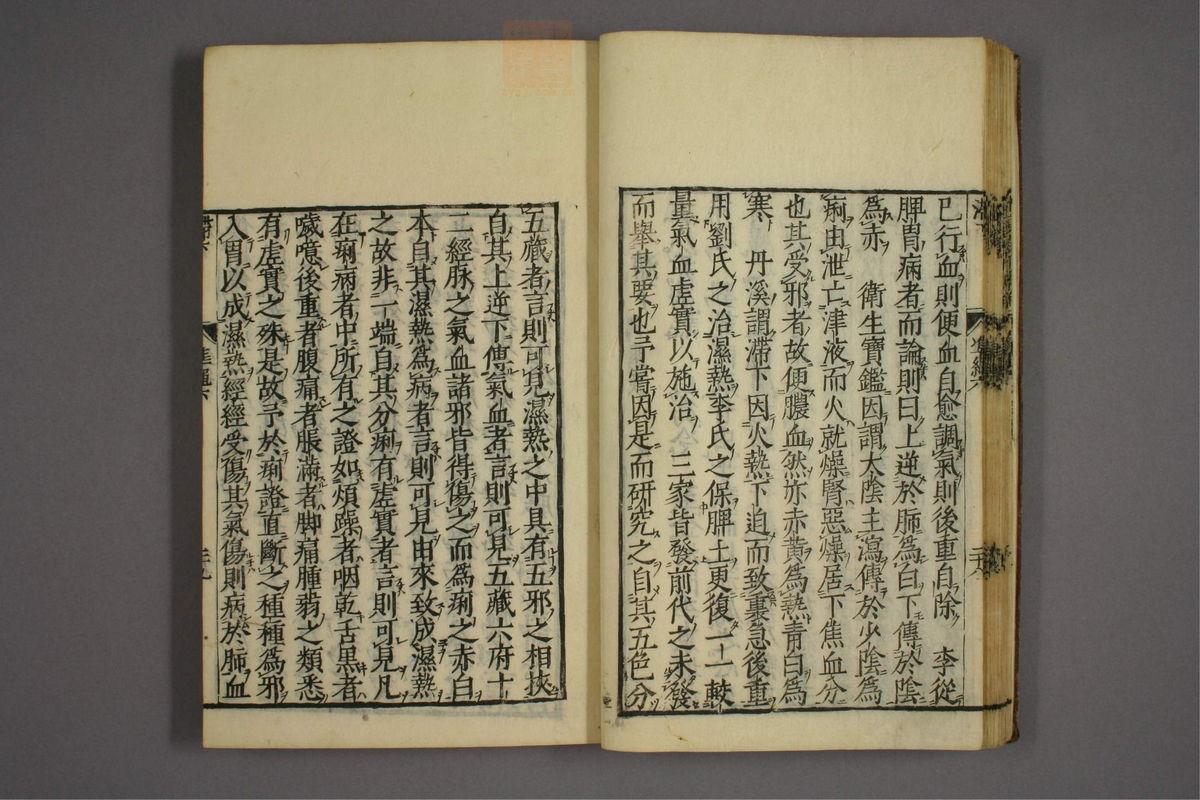 已行血則便血自愈調氣則後重自除　李從
脾胃病者而論則曰上逆於肺爲白下傳於陰
爲赤　衛生寶鑑因謂太陰主瀉傳於少陰爲
痢由泄亡津液而火就燥腎惡燥居下焦血分
也其受邪者故便膿血然亦赤黄爲熱青白爲
寒　丹溪謂滯下因火熱下迫而致裏急後重
用劉氏之治濕熱李氏之保脾土更復一一較
量氣血虛實以施治　三家皆發前代之未發
而舉其要也予嘗因是而研究之自其五色分
五藏者言則可見濕熱之中具有五邪之相挾
自其上逆下傳氣血者言則可見五藏六府十
二經脉之氣血諸邪皆得傷之而爲痢之赤白
本自其濕熱爲病者言則可見由來致成濕熱
之故非一端自其分痢有虛實者言則可見凡
在痢病者中所有之證如煩躁者咽乾舌黒者
噦噫後重者腹痛者脹滿者脚痛腫蒻之類悉
有虛實之殊是故予於痢證直斷之種種爲邪
入胃以成濕熱經經受傷其氣傷則病於肺血